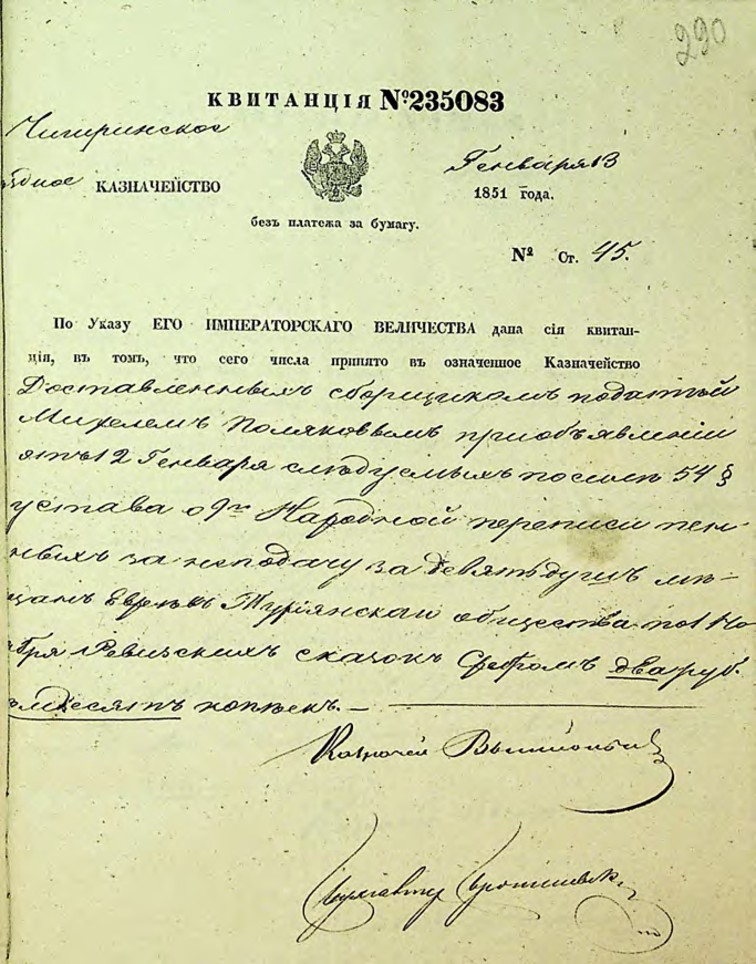 290
КВИТАНЦІЯ №235083
Чигиринское
Генваря 13
ѣздное КАЗНАЧЕЙСТВО
1851 года.
безъ платежа за бумагу.
№ Ст. 45.
По Указу ЕГО ИМПЕРАТОРСКАГО ВЕЛИЧЕСТВА дана сія квитан-
ція, въ томъ, что сего числа принято въ означенное Казначейство
Доставленныхъ сборщикомъ податтѣй
Михелемъ Поляковымъ приобъявленіи
отъ 12 Генваря слѣдуемыхъ посилѣ 54 §
устава о 9й Народной переписи пен-
ныхъ за неподачу за девять душъ мѣ-
щанъ Евреевъ Туріянскаго общества по 1 Но-
ября Ревизскихъ сказокъ Сребромъ два руб.
мдесятъ копѣекъ. —
Казначей
Бухгалтеръ